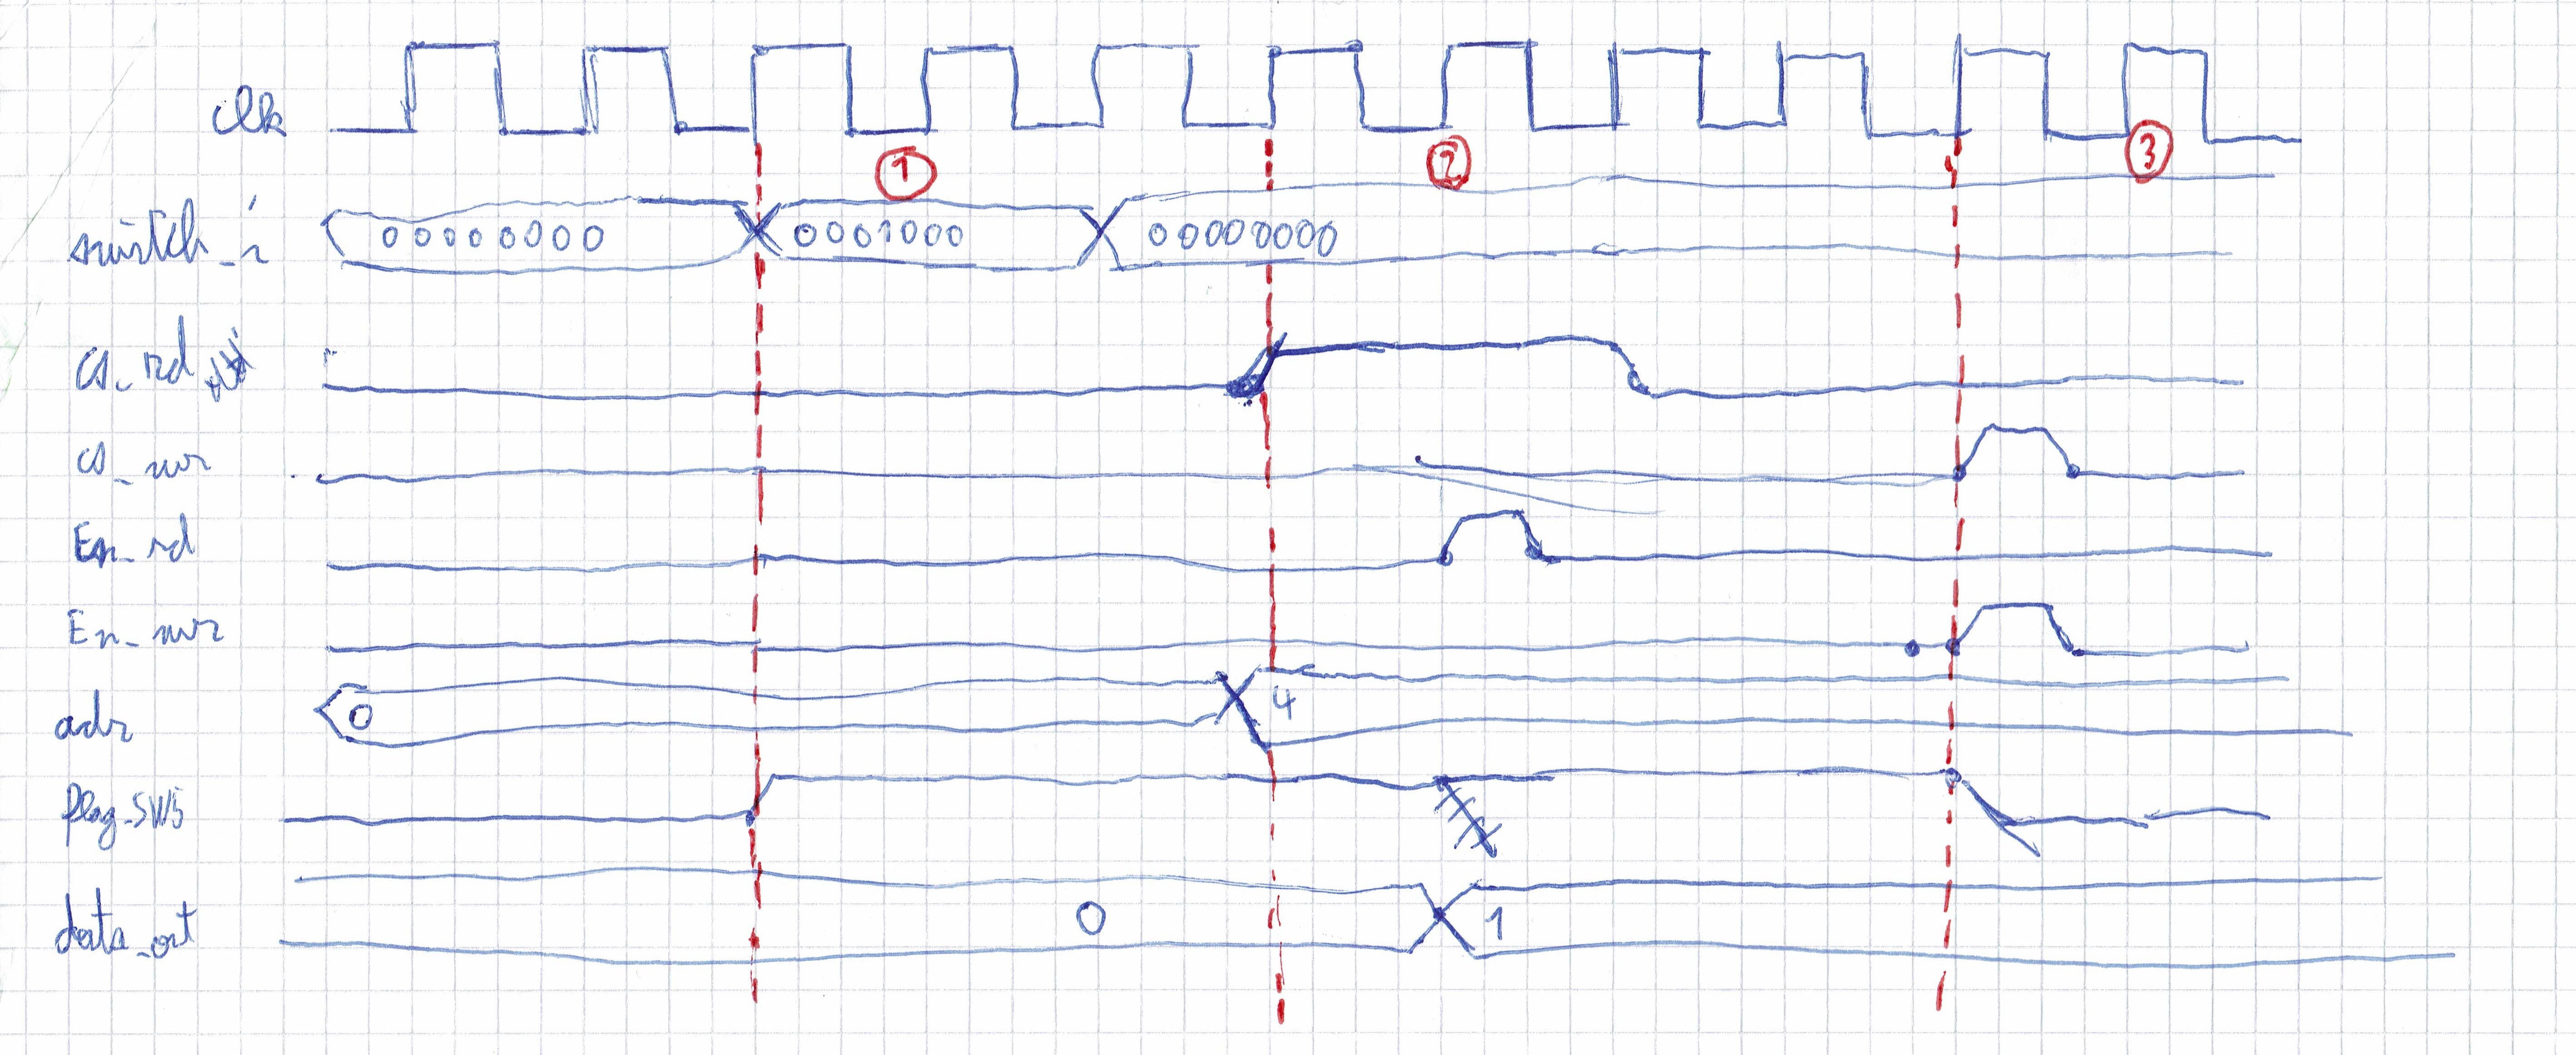 clk
① ② ③
switch_i 00000000 0001000 00000000
cs_rd
cs_wr
En_rd
En_wr
adr 0 4
flag_SW5
data_out 0 1